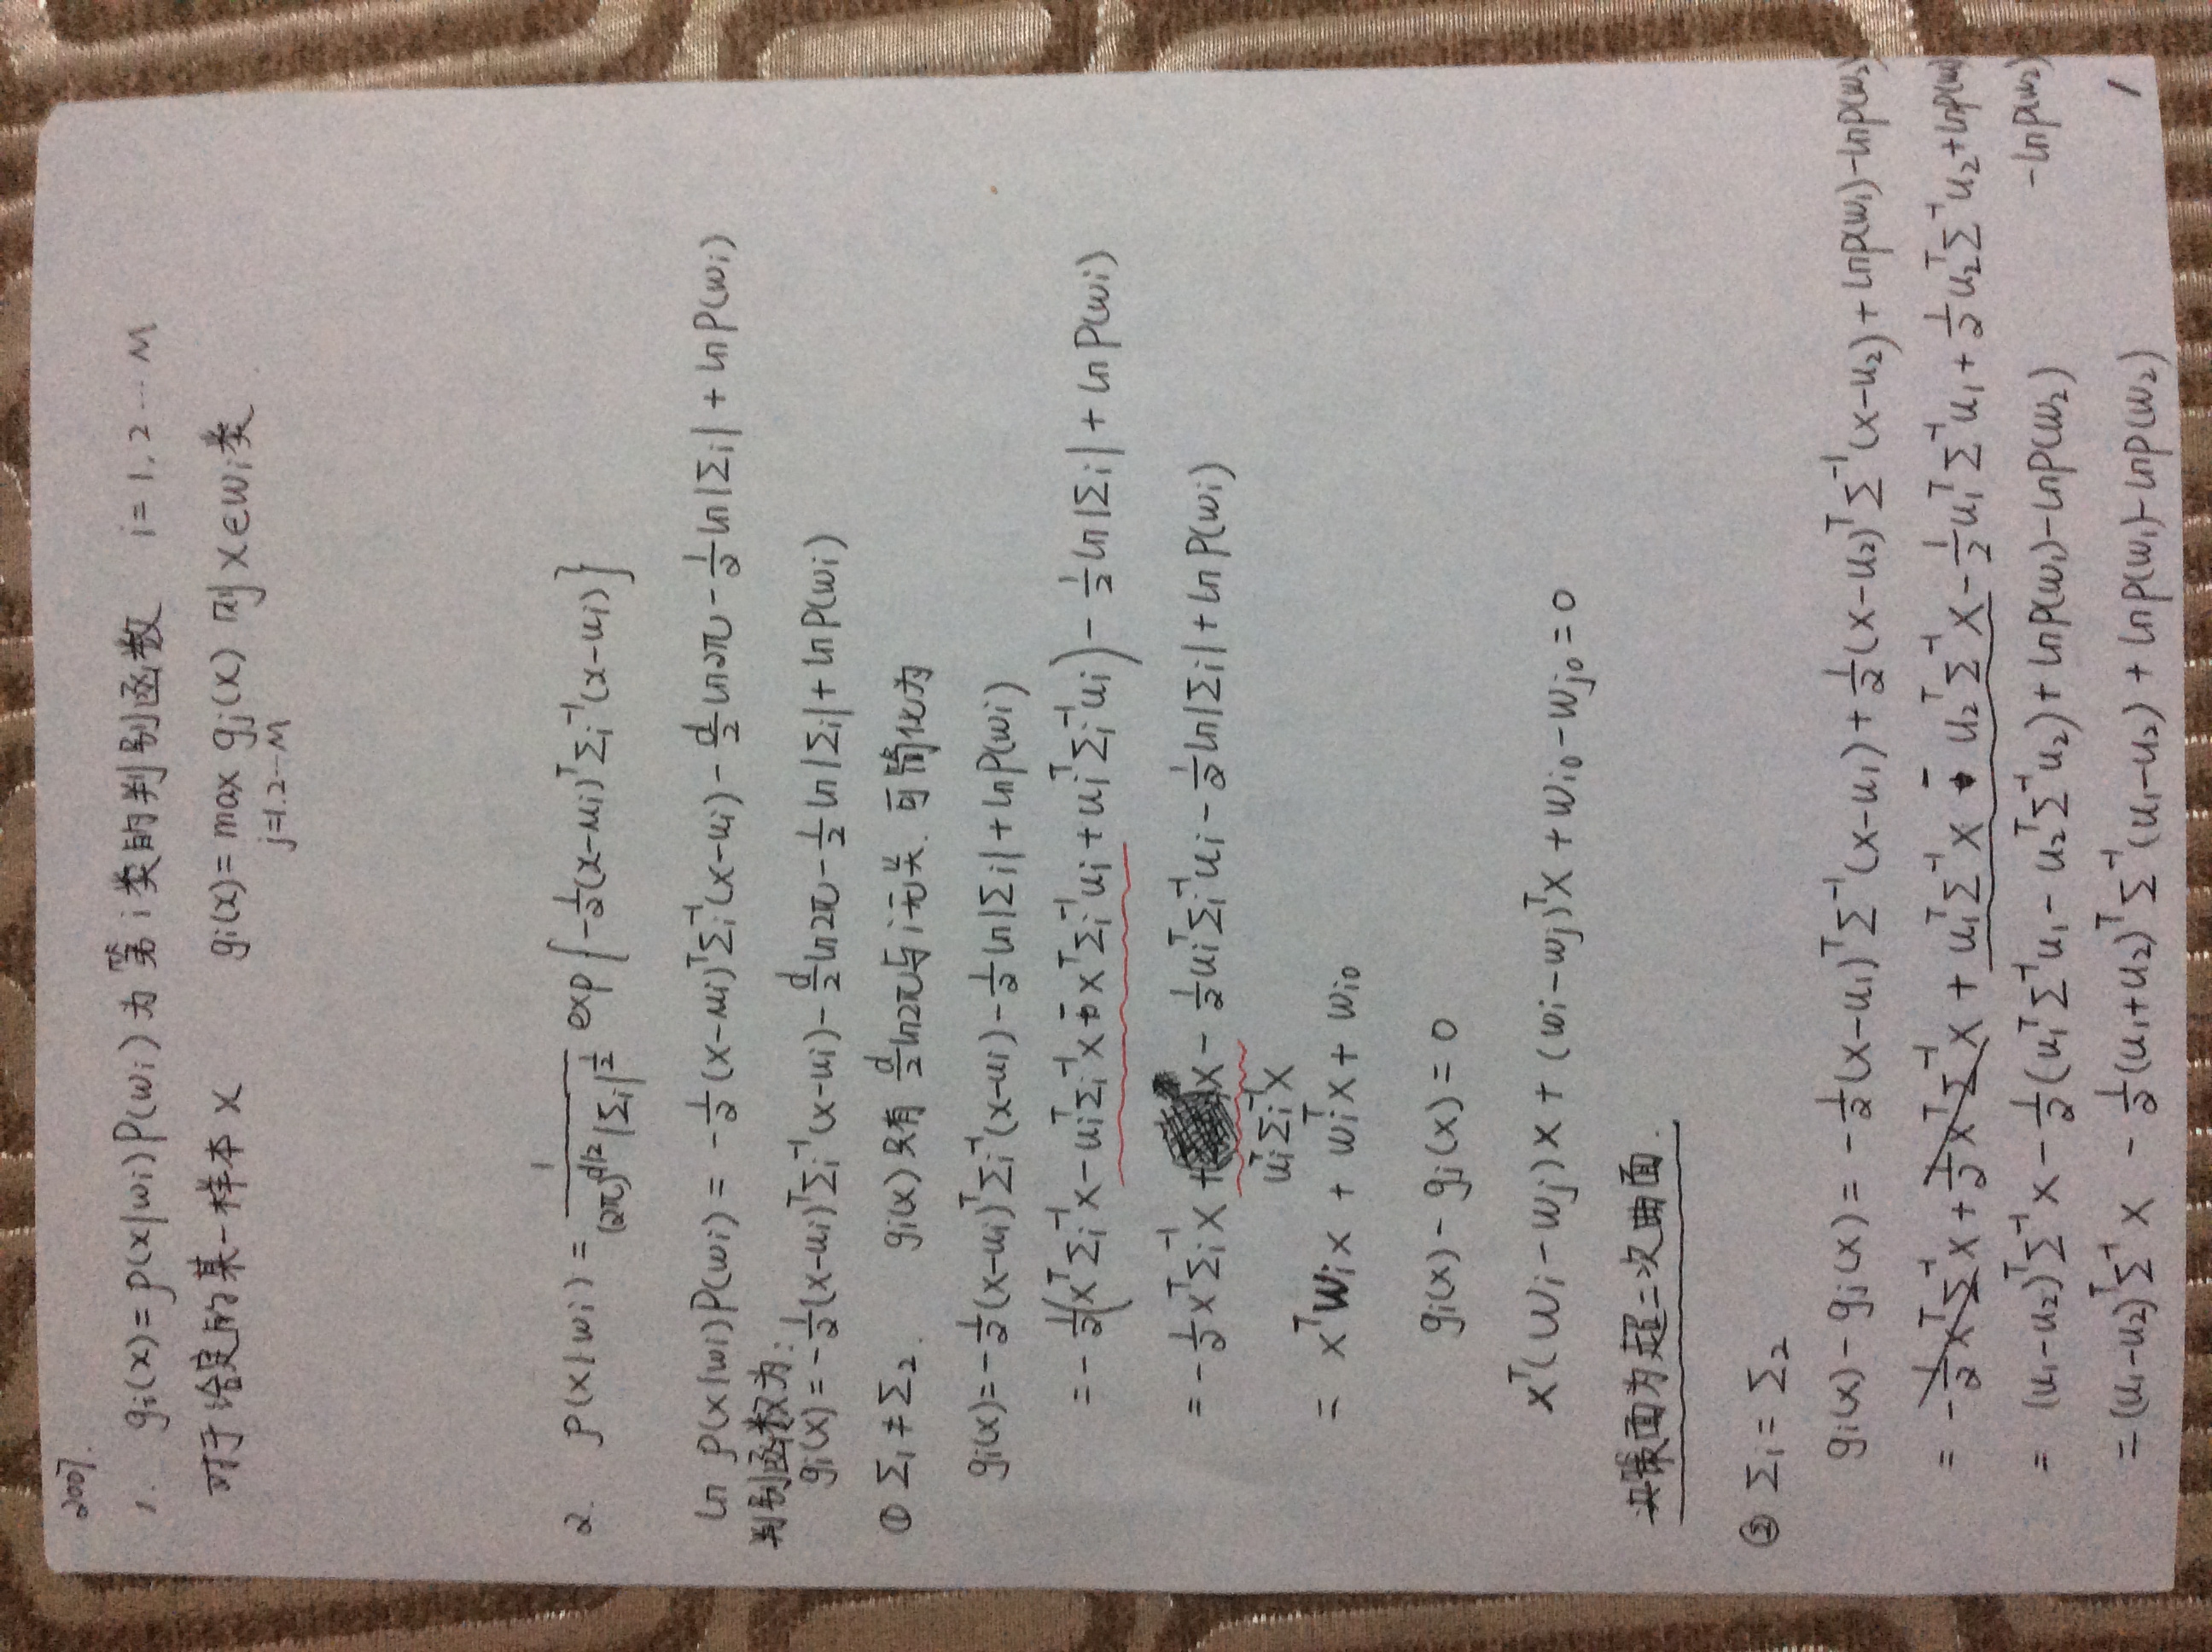 2007.
1. gᵢ(x)=p(x|wᵢ)P(wᵢ) 为第i类的判别函数 i=1.2…M
对于给定的某一样本 x gᵢ(x)= max gⱼ(x) 则 x∈wᵢ类
j=1.2…M
2. p(x|wᵢ) = 1/((2π)^{d/2}|Σᵢ|^{1/2}) exp{-½(x-uᵢ)ᵀΣᵢ⁻¹(x-uᵢ)}
ln p(x|wᵢ)P(wᵢ) = -½(x-uᵢ)ᵀΣᵢ⁻¹(x-uᵢ) - d/2 ln2π - ½ln|Σᵢ| + lnP(wᵢ)
判别函数为:
gᵢ(x) = -½(x-uᵢ)ᵀΣᵢ⁻¹(x-uᵢ) - d/2 ln2π - ½ln|Σᵢ| + lnP(wᵢ)
① Σ₁ ≠ Σ₂. gᵢ(x) 只有 d/2 ln2π与i无关. 可简化为
gᵢ(x) = -½(x-uᵢ)ᵀΣᵢ⁻¹(x-uᵢ) - ½ln|Σᵢ| + lnP(wᵢ)
= -½(xᵀΣᵢ⁻¹x - uᵢᵀΣᵢ⁻¹x - xᵀΣᵢ⁻¹uᵢ + uᵢᵀΣᵢ⁻¹uᵢ) - ½ln|Σᵢ| + lnP(wᵢ)
= -½xᵀΣᵢ⁻¹x + x - ½uᵢᵀΣᵢ⁻¹uᵢ - ½ln|Σᵢ| + lnP(wᵢ)
uᵢᵀΣᵢ⁻¹x
= xᵀWᵢx + wᵢᵀx + wᵢ₀
gᵢ(x) - gⱼ(x) = 0
xᵀ(Wᵢ-Wⱼ)x + (wᵢ-wⱼ)ᵀx + wᵢ₀ - wⱼ₀ = 0
决策面为超二次曲面.
② Σ₁ = Σ₂
gᵢ(x) - gⱼ(x) = -½(x-u₁)ᵀΣ⁻¹(x-u₁) + ½(x-u₂)ᵀΣ⁻¹(x-u₂) + lnP(w₁) - lnP(w₂)
= -½xᵀΣ⁻¹x + ½xᵀΣ⁻¹x + u₁ᵀΣ⁻¹x - u₂ᵀΣ⁻¹x - ½u₁ᵀΣ⁻¹u₁ + ½u₂ᵀΣ⁻¹u₂ + lnP(w₁)
-lnP(w₂)
= (u₁-u₂)ᵀΣ⁻¹x - ½(u₁ᵀΣ⁻¹u₁ - u₂ᵀΣ⁻¹u₂) + lnP(w₁) - lnP(w₂)
= (u₁-u₂)ᵀΣ⁻¹x - ½(u₁+u₂)ᵀΣ⁻¹(u₁-u₂) + lnP(w₁) - lnP(w₂)
1